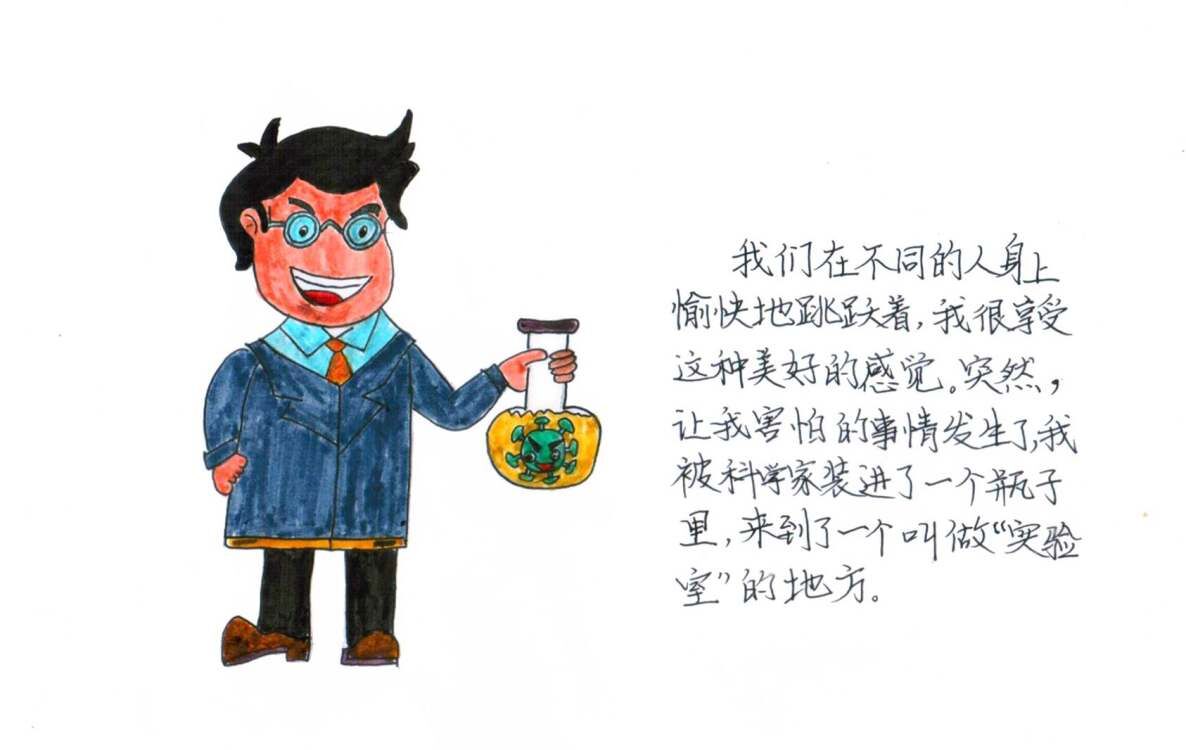 我们在不同的人身上
愉快地跳跃着,我很享受
这种美好的感觉。突然,
让我害怕的事情发生了,我
被科学家装进了一个瓶子
里,来到了一个叫做“实验
室”的地方。